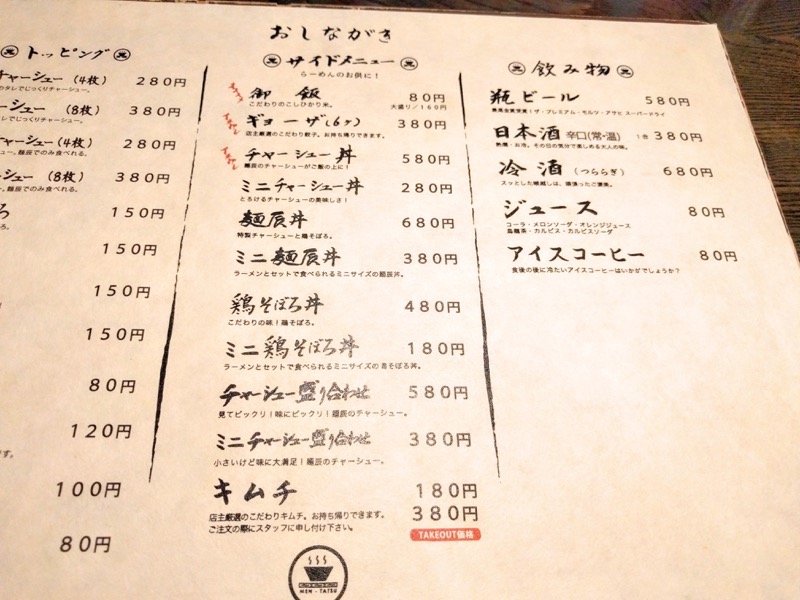 おしながき
トッピング
チャーシュー(4枚) 280円
のタレでじっくりチャーシュー。
チャーシュー (8枚) 380円
でじっくりチャーシュー。
チャーシュー(4枚) 280円
麺辰でのみ食べれる。
シュー (8枚) 380円
麺辰でのみ食べれる。
150円
150円
150円
150円
80円
120円
100円
80円
サイドメニュー
らーめんのお供に！
御飯 80円
こだわりのこしひかり米。 大盛り/160円
ギョーザ(6ヶ) 380円
店主厳選のこだわり餃子。お持ち帰りできます。
チャーシュー丼 580円
麺辰のチャーシューがご飯の上に！
ミニチャーシュー丼 280円
とろけるチャーシューの美味しさ！
麺辰丼 680円
特製チャーシューと鶏そぼろ。
ミニ麺辰丼 380円
ラーメンとセットで食べられるミニサイズの麺辰丼。
鶏そぼろ丼 480円
こだわりの味！鶏そぼろ。
ミニ鶏そぼろ丼 180円
ラーメンとセットで食べられるミニサイズの鶏そぼろ丼。
チャーシュー盛り合わせ 580円
見てビックリ！味にビックリ！麺辰のチャーシュー。
ミニチャーシュー盛り合わせ 380円
小さいけど味に大満足！麺辰のチャーシュー。
キムチ 180円
店主厳選のこだわりキムチ。お持ち帰りできます。 380円
ご注文の際にスタッフに申し付け下さい。 TAKEOUT価格
MEN-TATSU
飲み物
瓶ビール 580円
最高金賞受賞！ザ・プレミアム・モルツ・アサヒ スーパードライ
日本酒 辛口(常・温) 1合 380円
熱燗・お冷。その日の気分で楽しめる大人の味。
冷酒(つららぎ) 680円
ジュース 80円
コーラ・メロンソーダ・オレンジジュース
烏龍茶・カルピス・カルピスソーダ
アイスコーヒー 80円
食後の後に冷たいアイスコーヒーはいかがでしょうか？